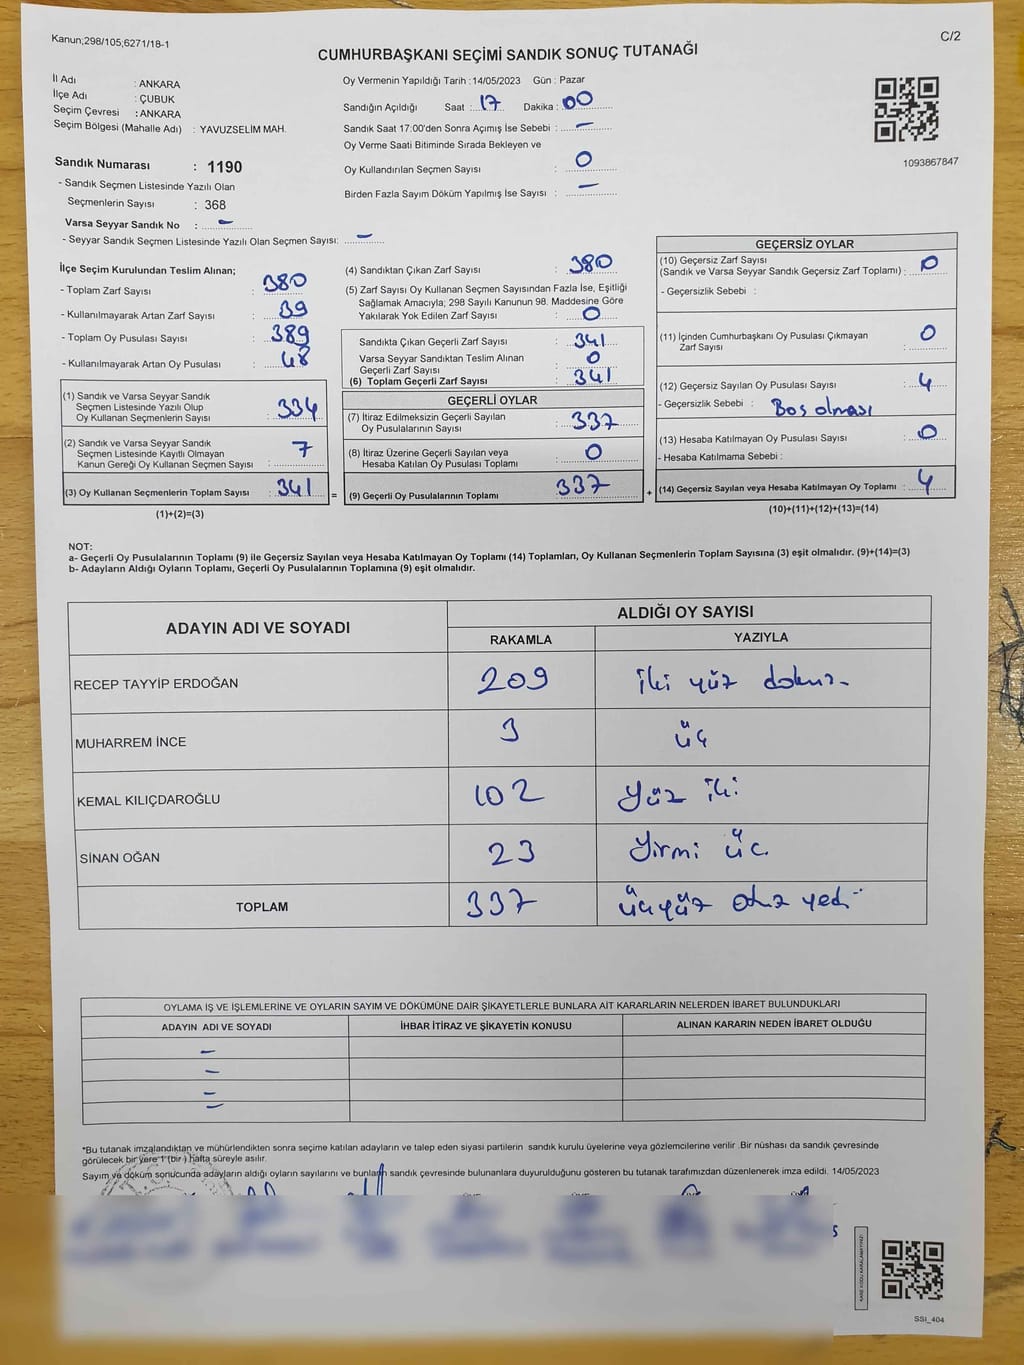 Kanun;298/105;6271/18-1
C/2
CUMHURBAŞKANI SEÇİMİ SANDIK SONUÇ TUTANAĞI
İl Adı : ANKARA
İlçe Adı : ÇUBUK
Seçim Çevresi : ANKARA
Seçim Bölgesi (Mahalle Adı) : YAVUZSELİM MAH.
Sandık Numarası : 1190
- Sandık Seçmen Listesinde Yazılı Olan
Seçmenlerin Sayısı : 368
Varsa Seyyar Sandık No : -
- Seyyar Sandık Seçmen Listesinde Yazılı Olan Seçmen Sayısı: -
Oy Vermenin Yapıldığı Tarih :14/05/2023 Gün : Pazar
Sandığın Açıldığı Saat : 17 Dakika : 00
Sandık Saat 17:00'den Sonra Açımış İse Sebebi : -
Oy Verme Saati Bitiminde Sırada Bekleyen ve
Oy Kullandırılan Seçmen Sayısı : 0
Birden Fazla Sayım Döküm Yapılmış İse Sayısı : -
1093867847
İlçe Seçim Kurulundan Teslim Alınan;
- Toplam Zarf Sayısı : 380
- Kullanılmayarak Artan Zarf Sayısı : 39
- Toplam Oy Pusulası Sayısı : 389
- Kullanılmayarak Artan Oy Pusulası : 48
(1) Sandık ve Varsa Seyyar Sandık
Seçmen Listesinde Yazılı Olup
Oy Kullanan Seçmenlerin Sayısı : 334
(2) Sandık ve Varsa Seyyar Sandık
Seçmen Listesinde Kayıtlı Olmayan
Kanun Gereği Oy Kullanan Seçmen Sayısı : 7
(3) Oy Kullanan Seçmenlerin Toplam Sayısı : 341
(1)+(2)=(3)
=
(4) Sandıktan Çıkan Zarf Sayısı : 380
(5) Zarf Sayısı Oy Kullanan Seçmen Sayısından Fazla İse, Eşitliği
Sağlamak Amacıyla; 298 Sayılı Kanunun 98. Maddesine Göre
Yakılarak Yok Edilen Zarf Sayısı : 0
Sandıkta Çıkan Geçerli Zarf Sayısı : 341
Varsa Seyyar Sandıktan Teslim Alınan
Geçerli Zarf Sayısı : 0
(6) Toplam Geçerli Zarf Sayısı : 341
GEÇERLİ OYLAR
(7) İtiraz Edilmeksizin Geçerli Sayılan
Oy Pusulalarının Sayısı : 337
(8) İtiraz Üzerine Geçerli Sayılan veya
Hesaba Katılan Oy Pusulası Toplamı : 0
(9) Geçerli Oy Pusulalarının Toplamı : 337
+
GEÇERSİZ OYLAR
(10) Geçersiz Zarf Sayısı
(Sandık ve Varsa Seyyar Sandık Geçersiz Zarf Toplamı) : 0
- Geçersizlik Sebebi :
(11) İçinden Cumhurbaşkanı Oy Pusulası Çıkmayan
Zarf Sayısı : 0
(12) Geçersiz Sayılan Oy Pusulası Sayısı : 4
- Geçersizlik Sebebi : Boş olması
(13) Hesaba Katılmayan Oy Pusulası Sayısı : 0
- Hesaba Katılmama Sebebi :
(14) Geçersiz Sayılan veya Hesaba Katılmayan Oy Toplamı : 4
(10)+(11)+(12)+(13)=(14)
NOT:
a- Geçerli Oy Pusulalarının Toplamı (9) ile Geçersiz Sayılan veya Hesaba Katılmayan Oy Toplamı (14) Toplamları, Oy Kullanan Seçmenlerin Toplam Sayısına (3) eşit olmalıdır. (9)+(14)=(3)
b- Adayların Aldığı Oyların Toplamı, Geçerli Oy Pusulalarının Toplamına (9) eşit olmalıdır.
ADAYIN ADI VE SOYADI ALDIĞI OY SAYISI
RAKAMLA YAZIYLA
RECEP TAYYİP ERDOĞAN 209 iki yüz dokuz
MUHARREM İNCE 3 üç
KEMAL KILIÇDAROĞLU 102 Yüz iki
SİNAN OĞAN 23 Yirmi üç
TOPLAM 337 üçyüz otuz yedi
OYLAMA İŞ VE İŞLEMLERİNE VE OYLARIN SAYIM VE DÖKÜMÜNE DAİR ŞİKAYETLERLE BUNLARA AİT KARARLARIN NELERDEN İBARET BULUNDUKLARI
ADAYIN ADI VE SOYADI İHBAR İTİRAZ VE ŞİKAYETİN KONUSU ALINAN KARARIN NEDEN İBARET OLDUĞU
-
-
-
-
*Bu tutanak imzalandıktan ve mühürlendikten sonra seçime katılan adayların ve talep eden siyasi partilerin sandık kurulu üyelerine veya gözlemcilerine verilir .Bir nüshası da sandık çevresinde
görülecek bir yere 1 (bir ) hafta süreyle asılır.
Sayım ve döküm sonucunda adayların aldığı oyların sayılarını ve bunların sandık çevresinde bulunanlara duyurulduğunu gösteren bu tutanak tarafımızdan düzenlenerek imza edildi. 14/05/2023
KARE KODU KARALAMAYINIZ!
SSI_404